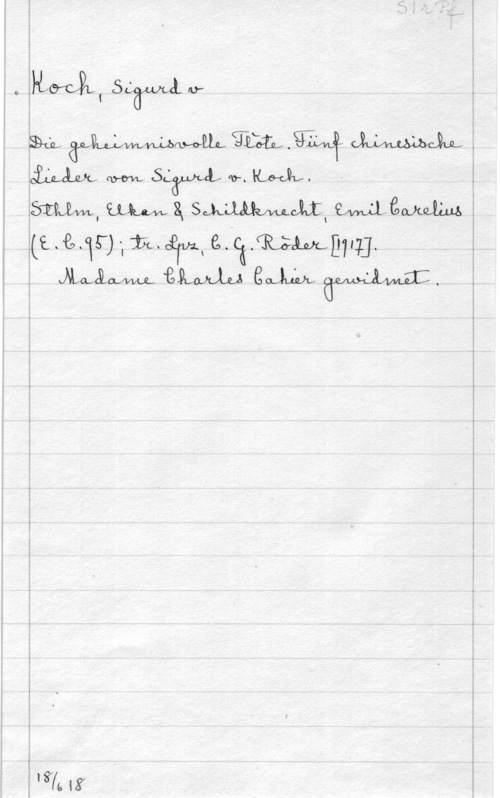 S1r Pf
Koch, Sigurd v
Die geheimnisvolle Flöte. Fünf chinesische
Lieder von Sigurd v. Koch.
Sthlm, Elkan & Schildknecht, Emil Carelius
(E.C.95); tr. Lpz, C.G. Röder [1917].
Madame Charles Cahier gewidmet.
18/6 18